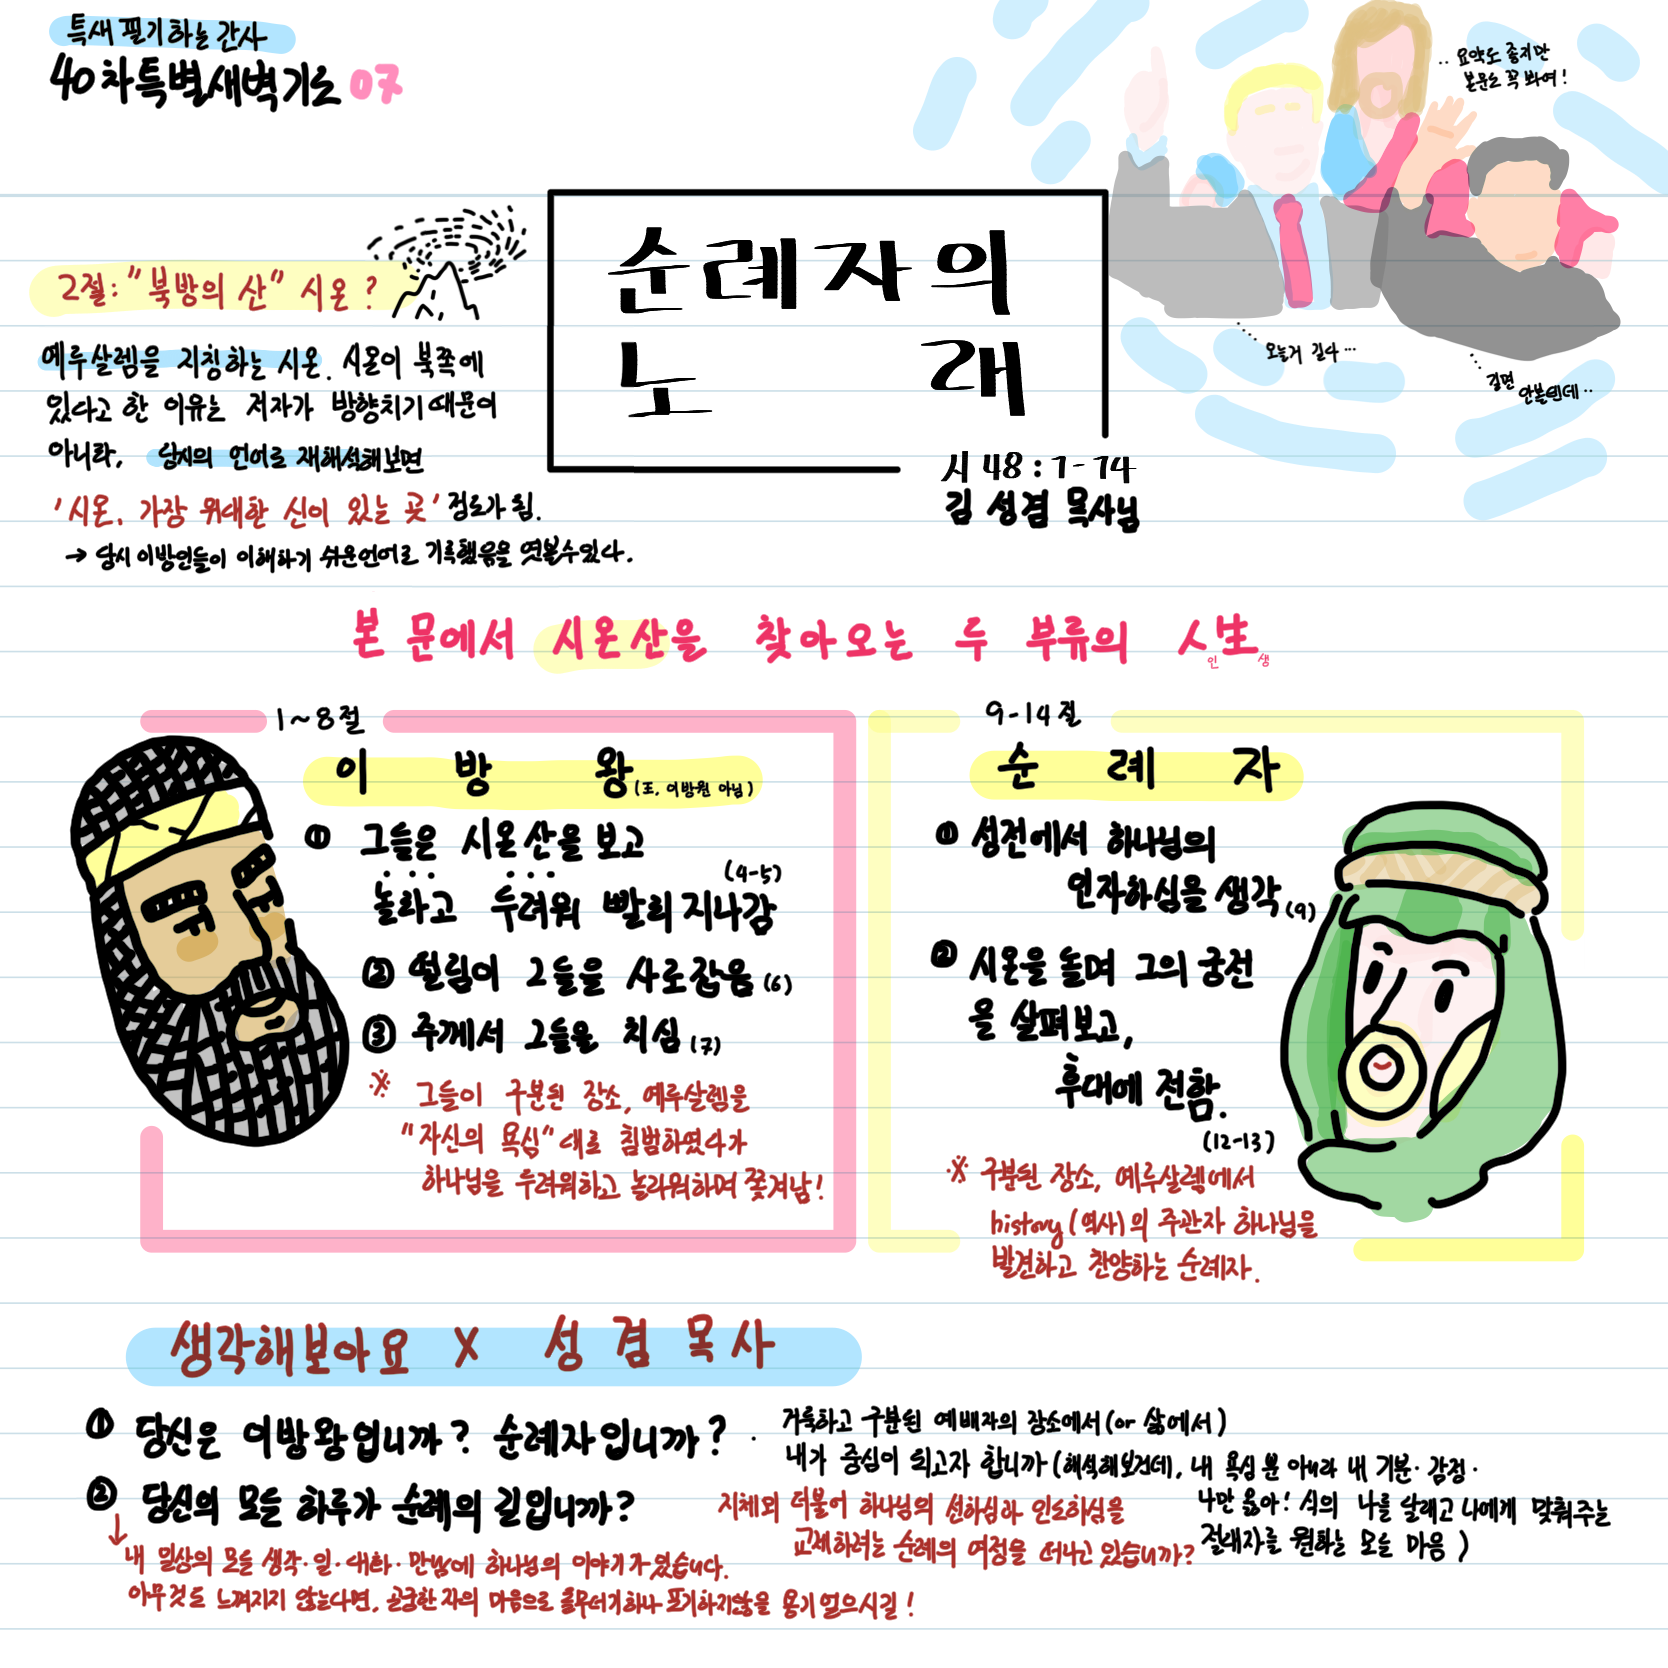 특새 필기하는 간사
40차특별새벽기도 07
.. 요약도 좋지만
본문도 꼭 봐여!
오늘거 길다...
길면
안볼텐데..
순례자의
노래
시 48:1-14
김성겸 목사님
2절: "북방의 산" 시온?
예루살렘을 지칭하는 시온. 시온이 북쪽에
있다고 한 이유는 저자가 방향치기 때문이
아니라, 당시의 언어로 재해석해보면
'시온, 가장 위대한 신이 있는 곳' 정도가 됨.
→ 당시 이방인들이 이해하기 쉬운언어로 기록했음을 엿볼수있다.
본문에서 시온산을 찾아오는 두 부류의 人生
인 생
1~8절
이방왕(王, 이방원 아님)
① 그들은 시온산을 보고
(4-5)
놀라고 두려워 빨리 지나감
② 떨림이 그들을 사로잡음 (6)
③ 주께서 그들을 치심 (7)
※ 그들이 구분된 장소, 예루살렘을
"자신의 욕심"대로 침범하였다가
하나님을 두려워하고 놀라워하며 쫓겨남!
9-14절
순례자
① 성전에서 하나님의
인자하심을 생각 (9)
② 시온을 돌며 그의 궁전
을 살펴보고,
후대에 전함.
(12-13)
※ 구분된 장소, 예루살렘에서
history(역사)의 주관자 하나님을
발견하고 찬양하는 순례자.
생각해보아요 X 성겸목사
① 당신은 이방왕입니까? 순례자입니까?
· 거룩하고 구분된 예배자의 장소에서(or 삶에서)
내가 중심이 되고자 합니까(해석해보건데, 내 욕심 뿐 아니라 내 기분·감정·
나만 옳아! 식의 나를 달래고 나에게 맞춰주는
절대자를 원하는 모든 마음)
지체와 더불어 하나님의 선하심과 인도하심을
교제하려는 순례의 여정을 떠나고 있습니까?
② 당신의 모든 하루가 순례의 길입니까?
↓ 내 일상의 모든 생각·일·대화·만남에 하나님의 이야기가 있습니다.
아무것도 느껴지지 않는다면, 궁한 자의 마음으로 포기하지않을 용기 얻으시길!